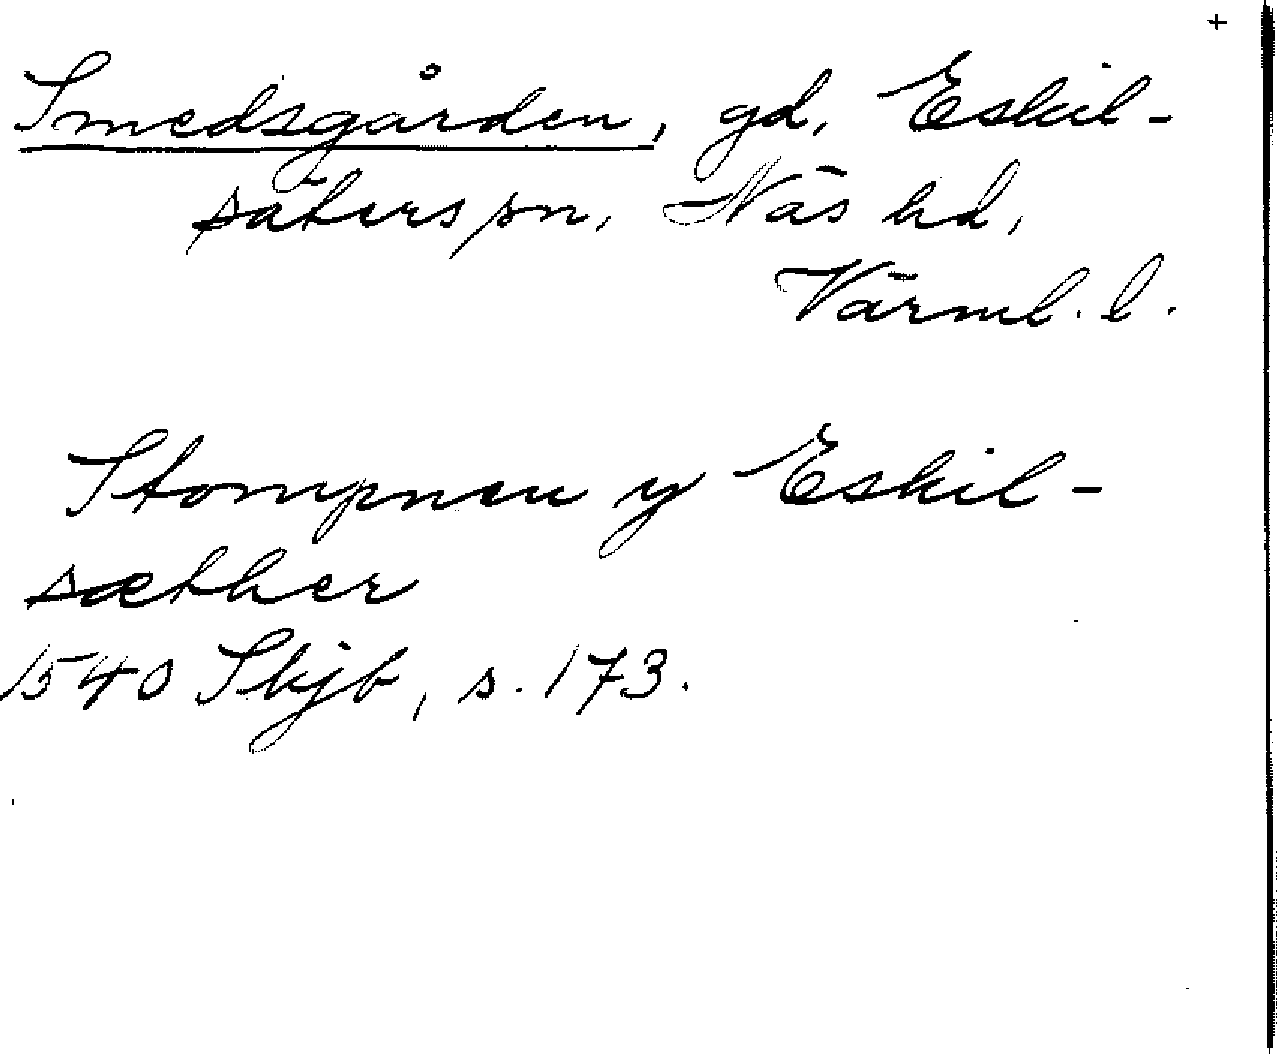 +
Smedsgården, gd, Eskil-
säters sn, Näs hd,
Värml. l.
Stompnen y Eskil-
sæther
1540 Skjb, s. 173.